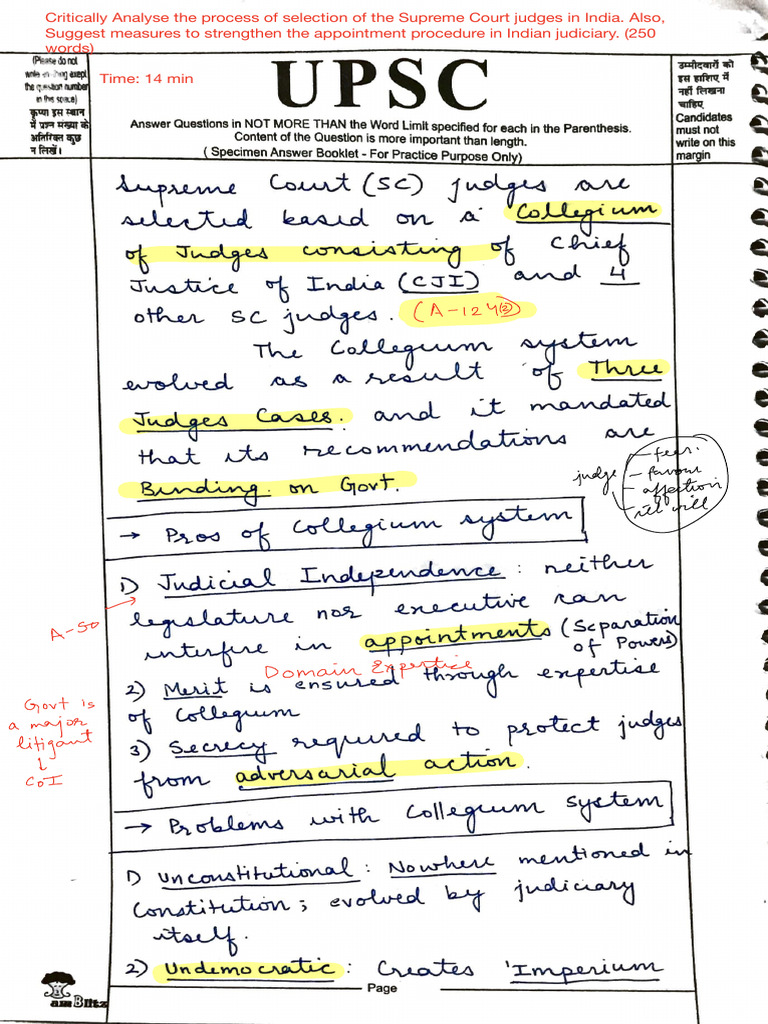 Critically Analyse the process of selection of the Supreme Court judges in India. Also,
Suggest measures to strengthen the appointment procedure in Indian judiciary. (250
words)
Time: 14 min
(Please do not
the question number
in this space)
कृपया इस स्थान
में प्रश्न संख्या के
अतिरिक्त कुछ
न लिखें।
UPSC
Answer Questions in NOT MORE THAN the Word Limit specified for each in the Parenthesis.
Content of the Question is more important than length.
( Specimen Answer Booklet - For Practice Purpose Only)
उम्मीदवारों को
इस हाशिए में
नहीं लिखना
चाहिए
Candidates
must not
write on this
margin
Supreme Court (SC) judges are
selected based on a Collegium
of Judges consisting of Chief
Justice of India (CJI) and 4
other SC judges. (A-124(2))
The Collegium system
evolved as a result of Three
Judges Cases. and it mandated
that its recommendations are
Binding on Govt.
judge
- fear
- favour
- affection
- ill will
→ Pros of Collegium system
1) Judicial Independence : neither
legislature nor executive can
interfire in appointments (Separation
of Powers)
A-50
Domain Expertise
2) Merit is ensured through expertise
of Collegium
3) Secrecy required to protect judges
from adversarial action.
Govt is
a major
litigant
↓
COI
→ Problems with Collegium system
1) Unconstitutional : Nowhere mentioned in
Constitution; evolved by judiciary
itself.
2) Undemocratic : Creates 'Imperium
Page